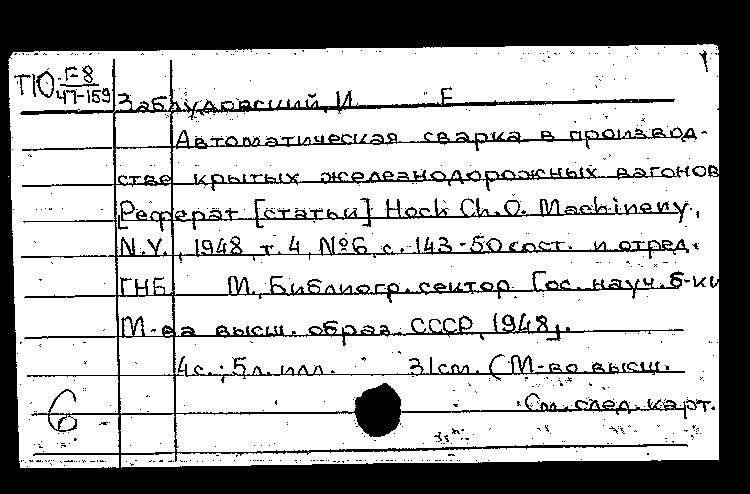 1
ПО Г-8
47-159
Заблудовский, И Е
Автоматическая сварка в производ-
стве крытых железнодорожных вагонов
[Реферат [статьи] Hoch Ch. O. Machinery,
N.Y., 1948, т. 4, №6, с. 143-50 сост. и отред.
ГНБ М., Библиогр. сектор Гос. науч. б-ки
М-ва высш. образ. СССР, 1948].
4с.; 5л. илл. 31см. (М-во высш.
См. след. карт.
6